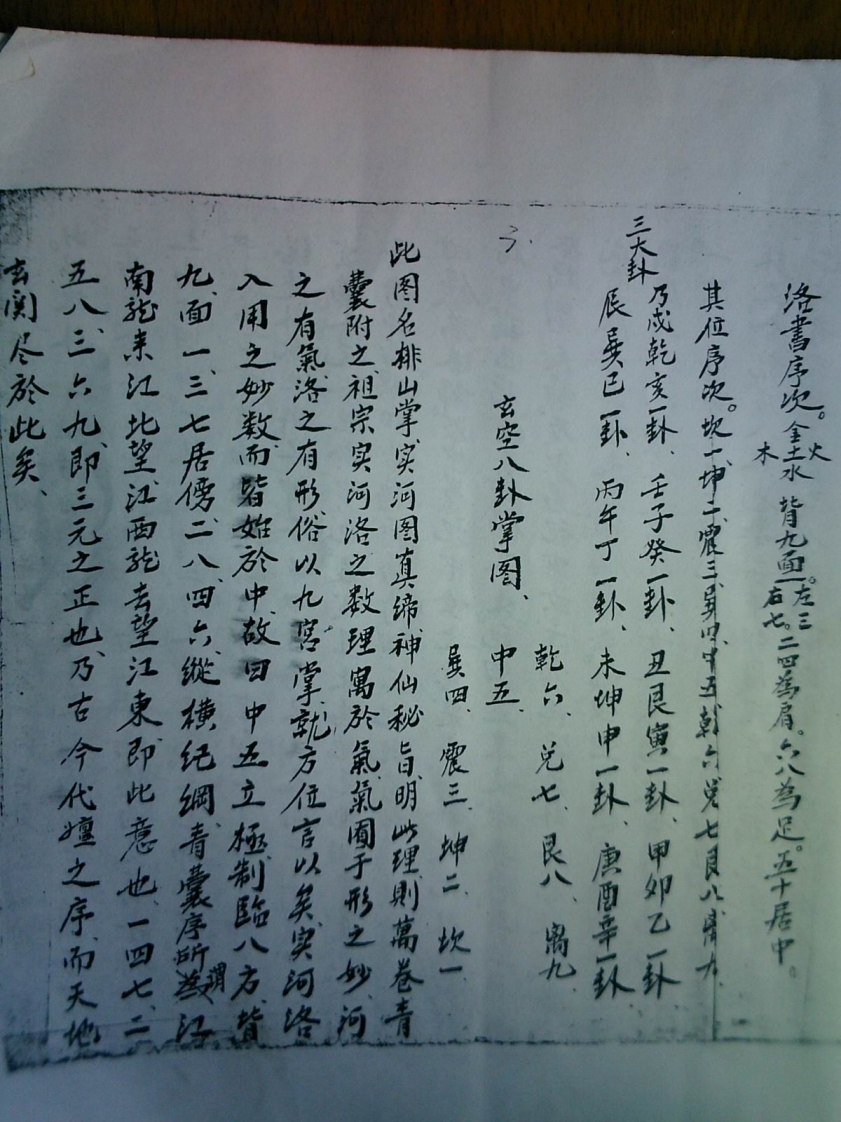 洛書序次。金土水木火 背九面一。左三右七。二四為肩。六八為足。五十居中。
其位序次。坎一、坤二、震三、巽四、中五、乾六、兌七、艮八、离九
三大卦
乃戌乾亥一卦、壬子癸一卦、丑艮寅一卦、甲卯乙一卦
辰巽巳一卦、丙午丁一卦、未坤申一卦、庚酉辛一卦、
乾六、兌七、艮八、离九
玄空八卦掌图、中五、
巽四、震三、坤二、坎一
此图名排山掌、实河图真缔、神仙秘旨、明此理、則萬卷青
囊附之、祖宗实河洛之数、理寓於氣、氣囿于形之妙、河
之有氣、洛之有形、俗以九宮掌、就方位言以矣、实河洛
入用之妙数、而皆始於中、故曰中五立極、制臨八方、背
九、面一、三七居傍、二八、四六、縱横纪綱、青囊序所謂江
南龍来江北望、江西龍去望江東、即此意也、一四七、二
五八、三六九、即三元之正也、乃古今代嬗之序、而天地
玄関尽於此矣、